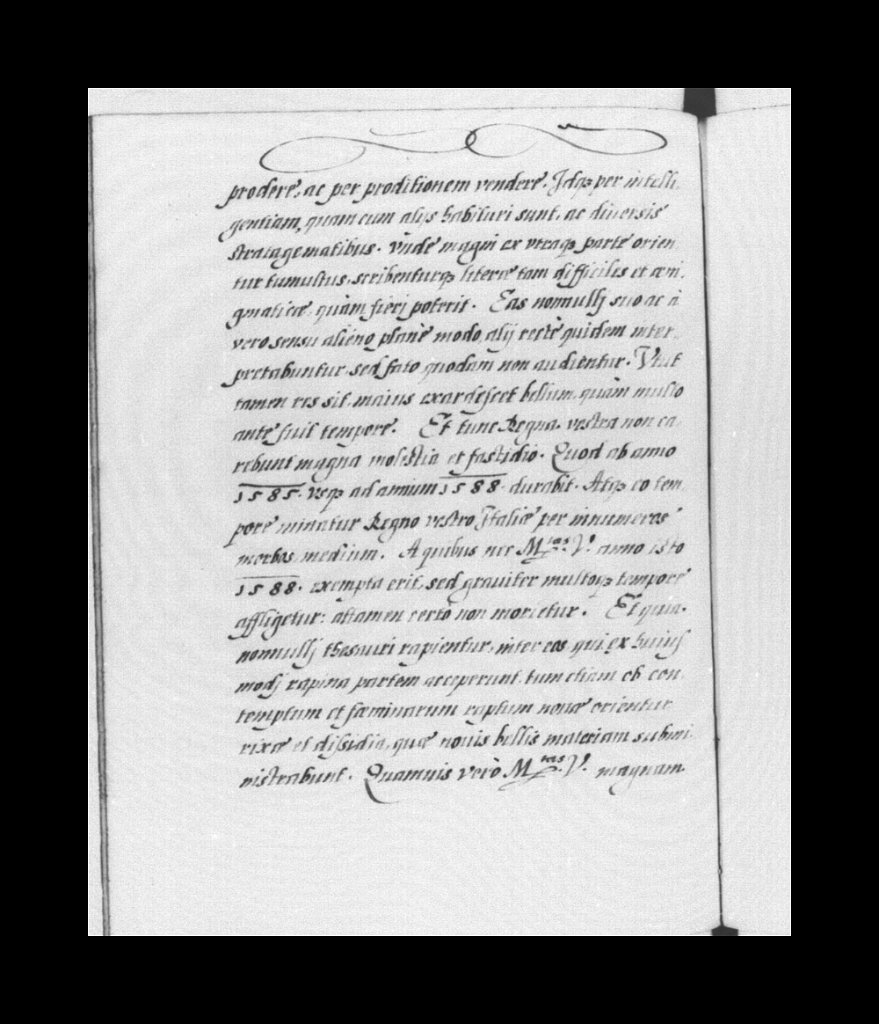 prodere, ac per proditionem vendere. Idq₃ per intelli,
gentiam, quam cum alijs habituri sunt, ac diversis
stratagematibus. Vnde magni ex vtraq₃ parte orien
tur tumultus, scribenturq₃ literæ tam difficiles et æni,
gmaticæ, quàm fieri poterit. Eas nonnullj suo ac à
vero sensu alieno planè modo, alij rectè quidem inter,
pretabuntur, sed fato quodam non audientur. Vtut
tamen res sit, maius exardescet bellum, quàm multo
antè fuit tempore. Et tunc Regna vestra non ca,
rebunt magna molestia et fastidio. Quod ab anno
1585. vsq₃ ad annum 1588. durabit. Atq₃ eo tem,
pore minatur Regno vestro Italiæ per innumeros
morbos medium. A quibus nec M.tas V. anno isto
1588. exempta erit, sed graviter multoq₃ tempore
affligetur: attamen certò non morietur. Et quia
nonnullj thesauri rapientur, inter eos qui ex huius
modj rapina partem acceperunt, tum etiam ob con,
temptum et fæminarum raptum novæ orientur
rixæ et dissidia, quæ novis bellis materiam submi
nistrabunt. Quamuis verò M.tas V. magnam